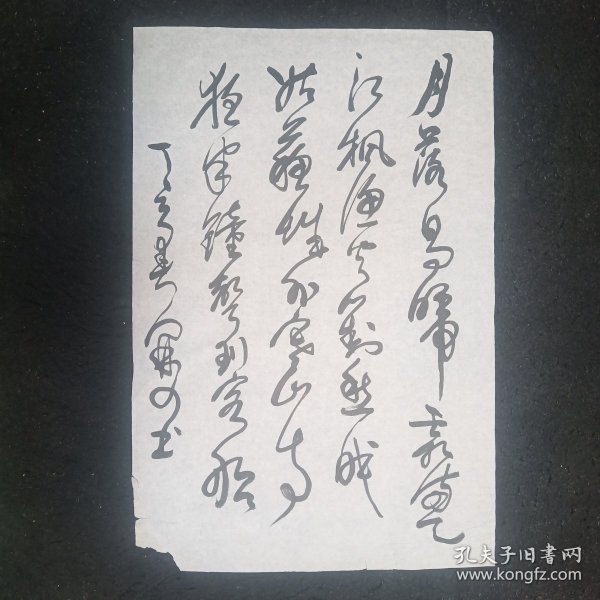 月落烏啼霜滿天
江楓漁火對愁眠
姑蘇城外寒山寺
夜半鐘聲到客船
丁亥春书
孔夫子旧书网
www.kongfz.com